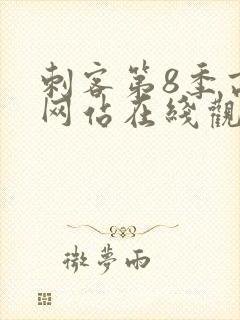 刺客第8季百
网站在线观
微梦雨